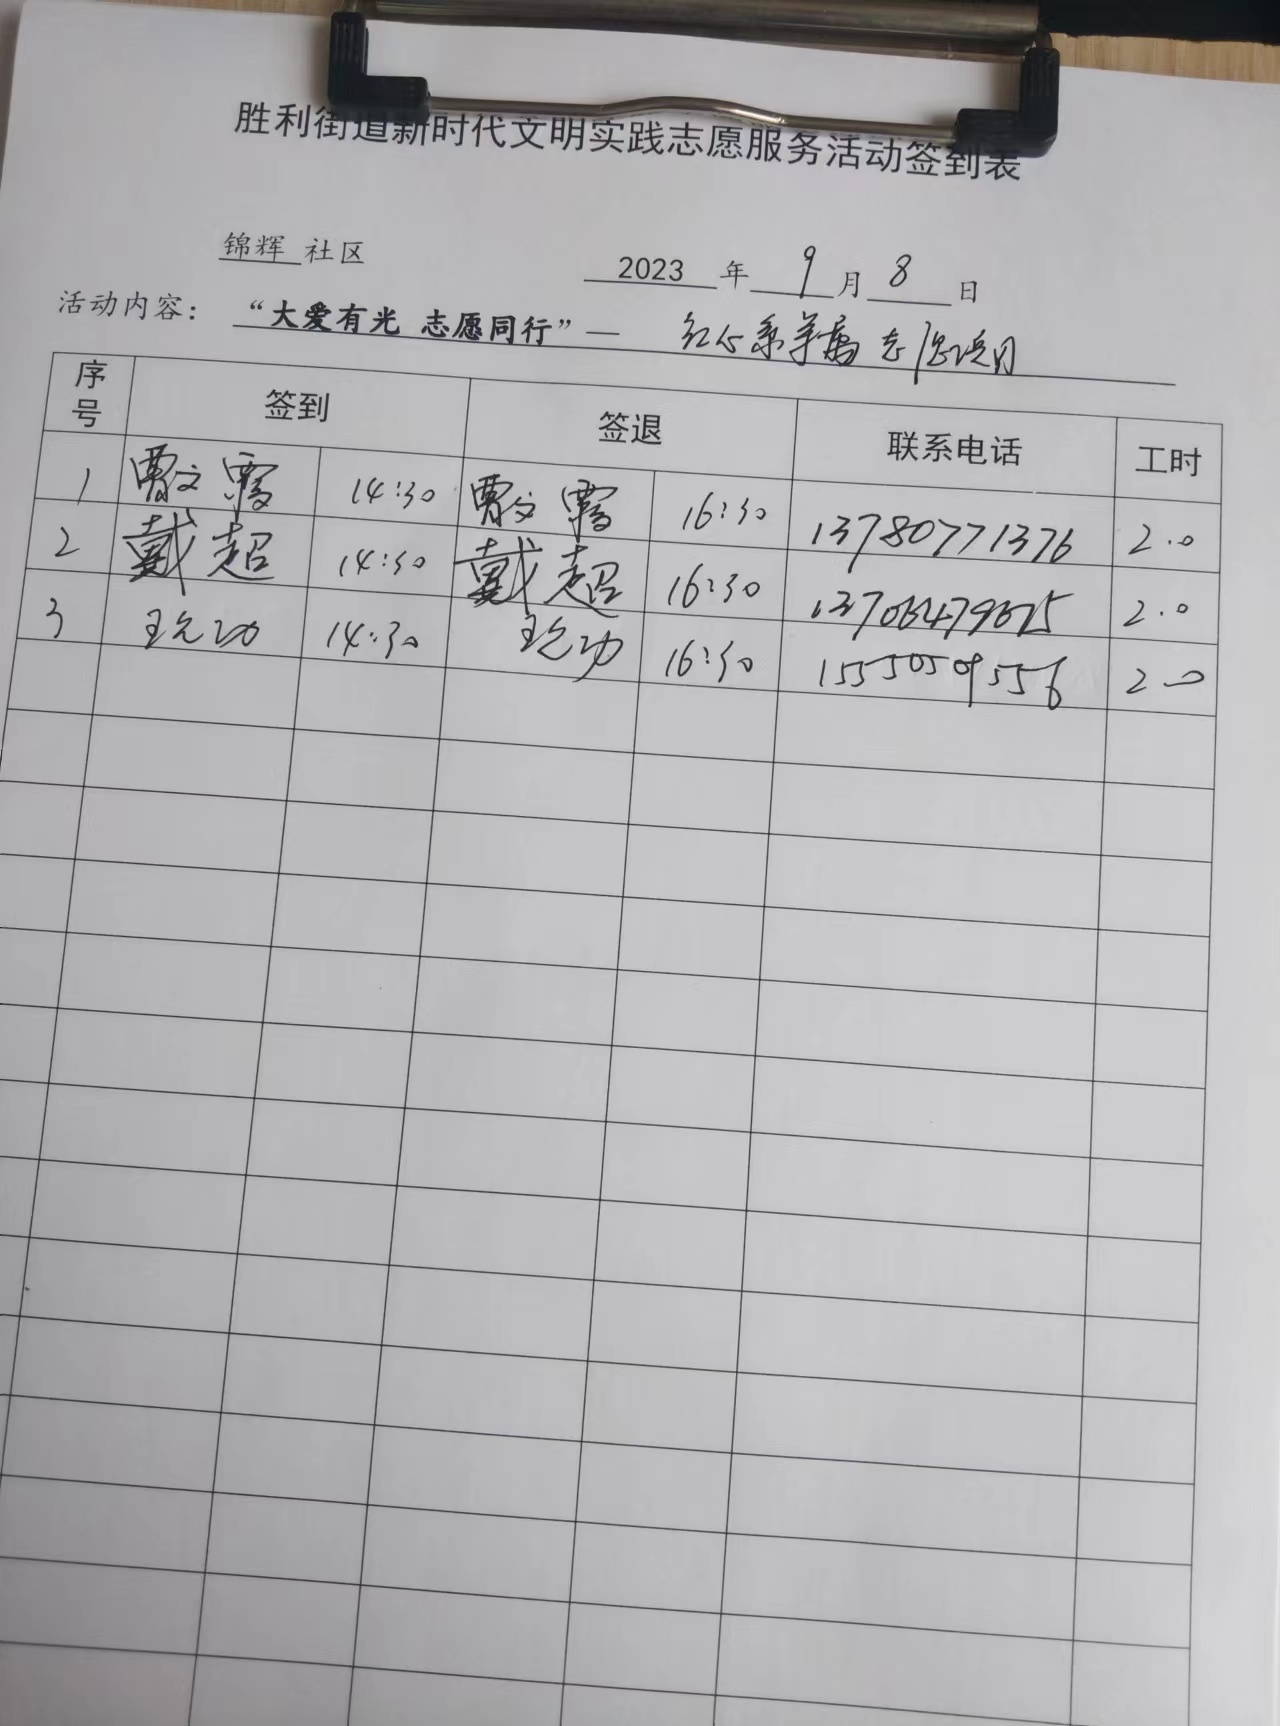 胜利街道新时代文明实践志愿服务活动签到表
锦辉 社区 2023 年 9 月 8 日
活动内容： “大爱有光 志愿同行”— 红心系军属志愿项目
序号 签到 签退 联系电话 工时
1 曹文霞 14:30 曹文霞 16:30 13780771376 2.0
2 戴超 14:30 戴超 16:30 2.0
3 14:30 16:30 15550509556 2.0